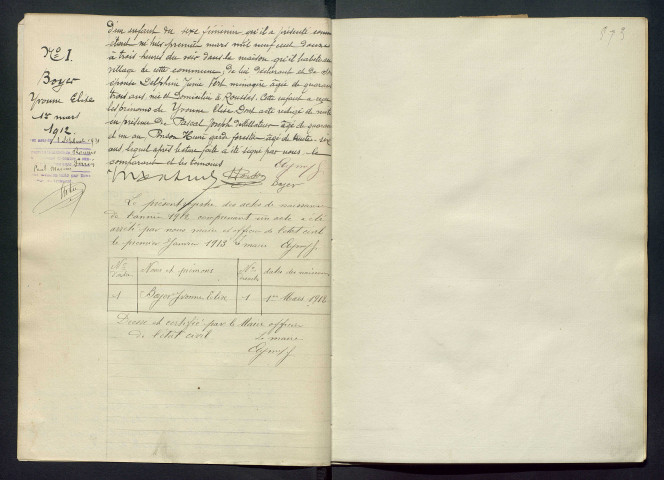 N° 1.
Boyer
Yvonne Elise
1er mars
1912
d'un enfant du sexe féminin qu'il a présenté comme
étant né hier premier mars mil neuf cent douze
à trois heures du soir dans la maison qu'il habite au
village de cette commune, de lui déclarant et de son
épouse Delphine ménagère âgée de quarante
trois ans, née et domiciliée à Roussas. Cette enfant a reçu
les prénoms de Yvonne Elise Dont acte rédigé de suite
en présence de Pascal Joseph âgé de quarante
et un an Henri garde forestier âgé de trente
ans, lequel après lecture faite a été signé par nous, le
comparant et les témoins
Boyer
Le présent registre des actes de naissance
de l'année 1912 comprenant un acte a été
arrêté par nous maire et officier de l'état civil
le premier Janvier 1913 le maire
Nos Noms et prénoms Nos dates des naissances
1 Boyer Yvonne Elise 1 1er Mars 1912
Dressé et certifié par le Maire officier
de l'état civil
Le maire